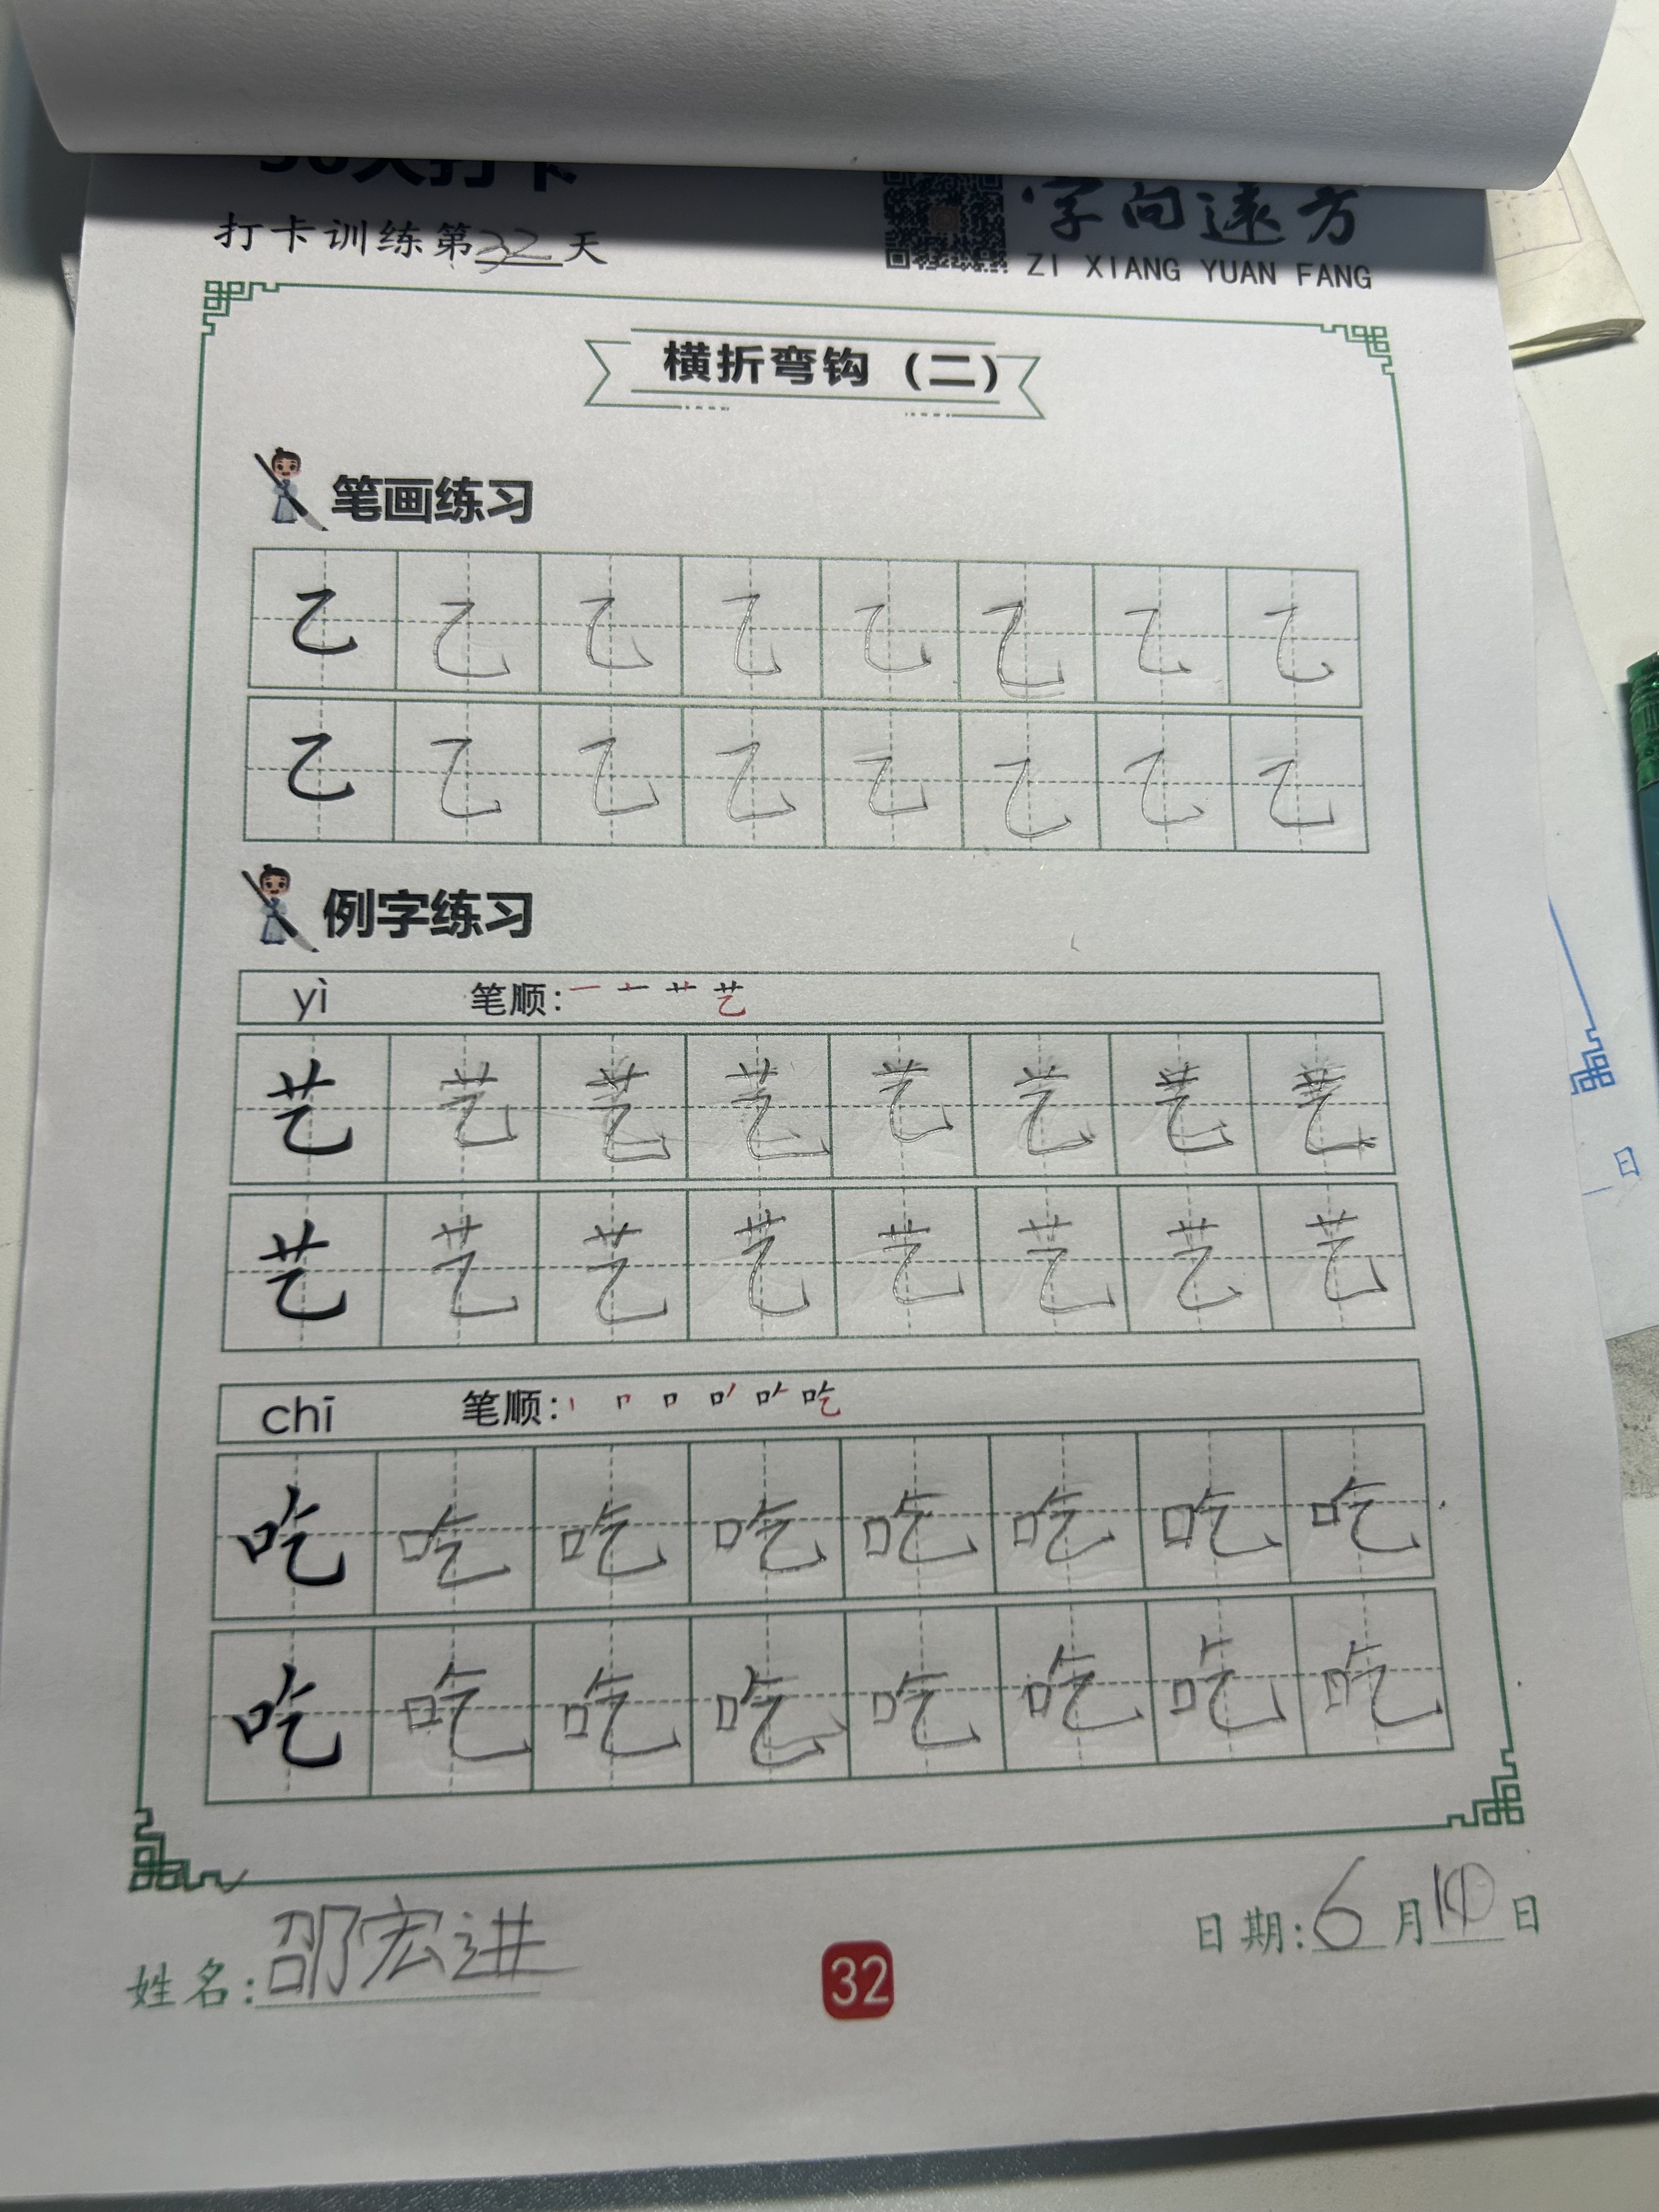 打卡训练第32天
字向远方
ZI XIANG YUAN FANG
横折弯钩（二）
笔画练习
乙 乙 乙 乙 乙 乙 乙 乙
乙 乙 乙 乙 乙 乙 乙 乙
例字练习
yì 笔顺：一 十 艹 艺
艺 艺 艺 艺 艺 艺 艺 艺
艺 艺 艺 艺 艺 艺 艺 艺
chī 笔顺：
吃 吃 吃 吃 吃 吃 吃 吃
吃 吃 吃 吃 吃 吃 吃 吃
姓名：邵宏进
32
日期：6月日
日